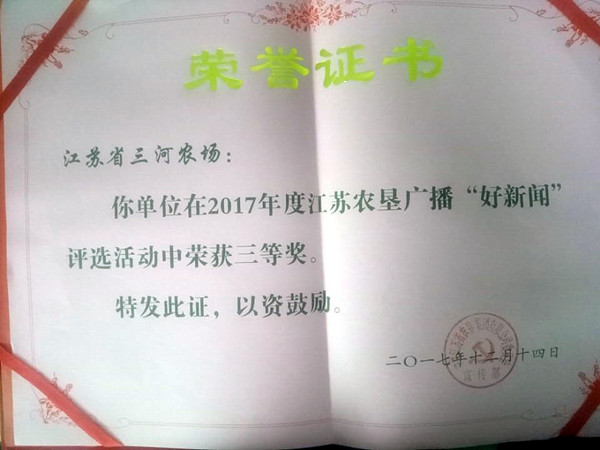 荣誉证书
江苏省三河农场：
你单位在2017年度江苏农垦广播“好新闻”
评选活动中荣获三等奖。
特发此证，以资鼓励。
二〇一七年十二月十四日
宣传部